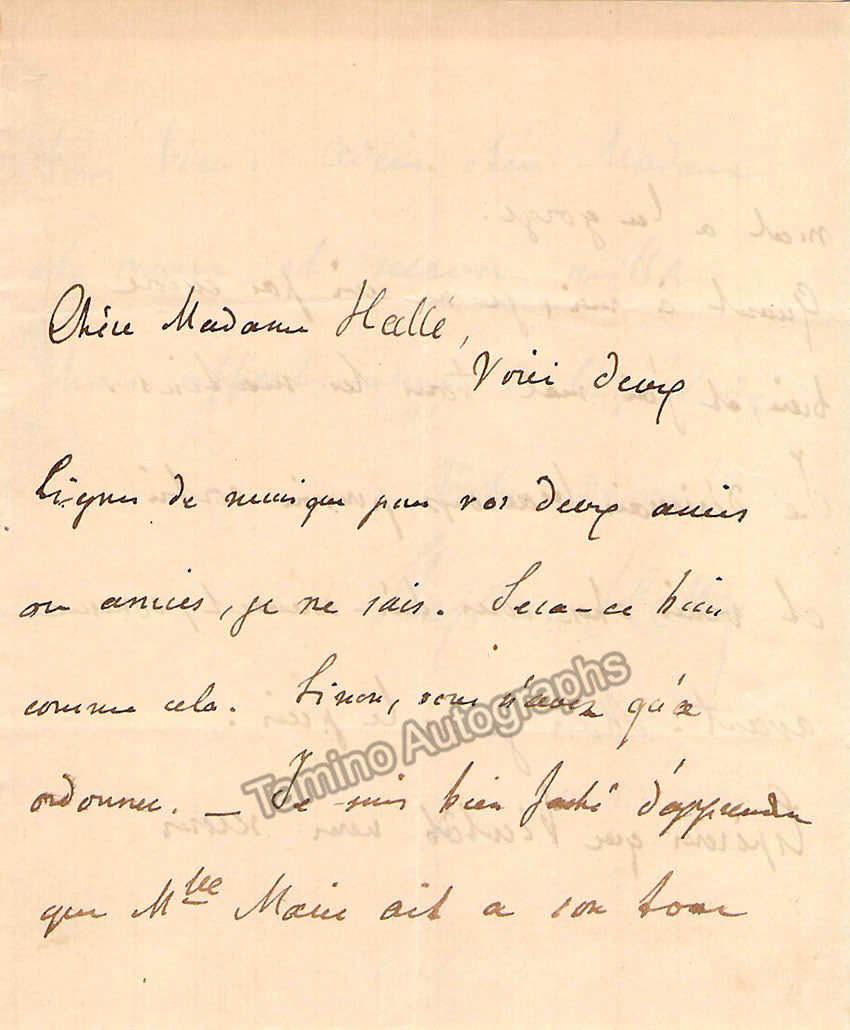 Chère Madame Hallé,
Voici deux
lignes de musique pour vos deux amies
ou amies, je ne sais. Sera-ce bien
comme cela. Sinon, vous n'avez qu'à
ordonner. — Je suis bien faché d'apprendre
que Mlle Marie ait a son tour
Tamino Autographs